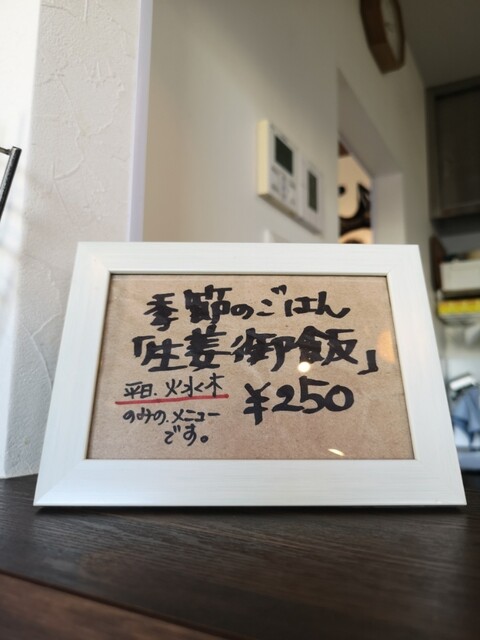 季節のごはん
「生姜御飯」
平日.火水木
¥250
のみの.メニュー
です。